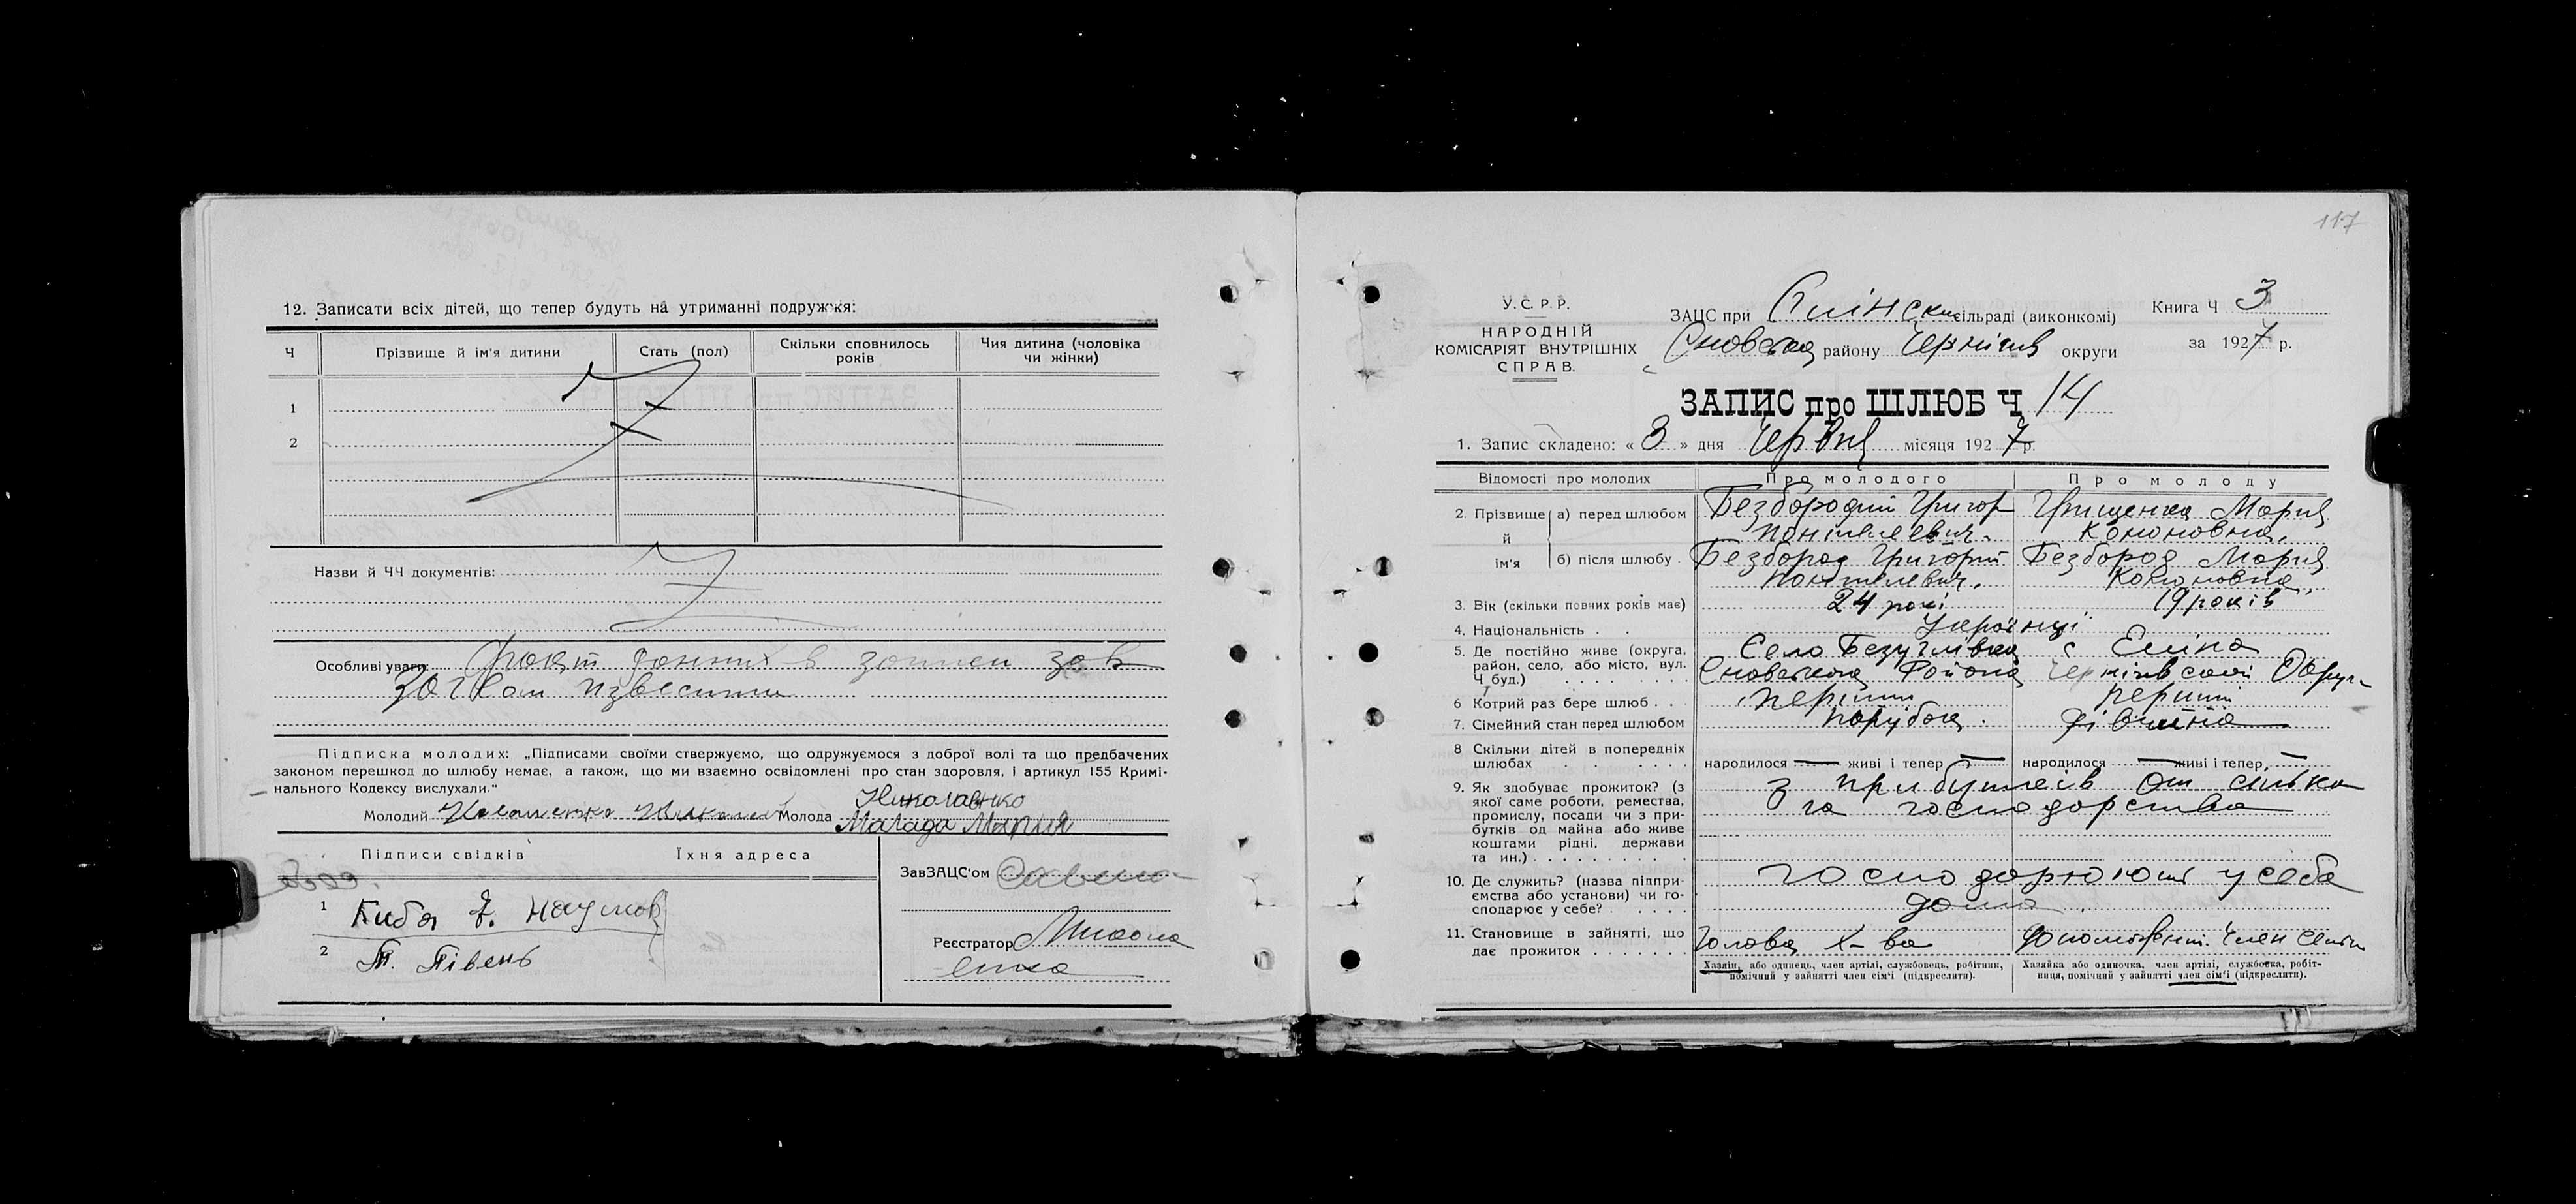 12. Записати всіх дітей, що тепер будуть на утриманні подружжя:
Ч Прізвище й ім'я дитини Стать (пол) Скільки сповнилось років Чия дитина (чоловіка чи жінки)
1
2
Назви й ЧЧ документів:
Особливі уваги:
Підписка молодих: „Підписами своїми стверджуємо, що одружуємося з доброї волі та що предбачених
законом перешкод до шлюбу немає, а також, що ми взаємно освідомлені про стан здоровля, і артикул 155 Кримі-
нального Кодексу вислухали."
Молодий Молода Николаенко
Малада Мария
Підписи свідків Їхня адреса
ЗавЗАЦС'ом
1 Киба
2 Півень
Реєстратор
117
У.С.Р.Р.
НАРОДНІЙ
КОМІСАРІЯТ ВНУТРІШНІХ
СПРАВ.
ЗАЦС при сільраді (виконкомі)
Сновська району Чернігів округи
Книга Ч 3
за 1927 р.
ЗАПИС про ШЛЮБ Ч 14
1. Запис складено: « 3 » дня Червня місяця 1927 р.
Відомості про молодих Про молодого Про молоду
2. Прізвище й ім'я а) перед шлюбом Безбородий Григор Грищенка Мария
Кононовна.
б) після шлюбу Безбород Григорий Безбород Мария
Кононовна
3. Вік (скільки повних років має) 24 рокі 19 років
4. Національність Українці
5. Де постійно живе (округа, район, село, або місто, вул. Ч буд.) Село Безуглівка с Єліно
Сновського Району Чернігівской Округ
6 Котрий раз бере шлюб перший перший
7. Сімейний стан перед шлюбом парубок дівчина
8 Скільки дітей в попередніх шлюбах народилося — живі і тепер — народилося — живі і тепер —
9. Як здобуває прожиток? (з якої саме роботи, ремества, промислу, посади чи з прибутків од майна або живе коштами рідні, держави та ин.) з прибутків от сілько
го господарства
10. Де служить? (назва підприємства або установи) чи господарює у себе? господарюють у себе
дома
11. Становище в зайнятті, що дає прожиток Голова Х-ва Член сімї
Хазяїн, або одинець, член артілі, службовець, робітник, помічний у зайнятті член сім'ї (підкреслити).
Хазяйка або одиночка, член артілі, службовка, робітниця, помічний у зайнятті член сім'ї (підкреслити).